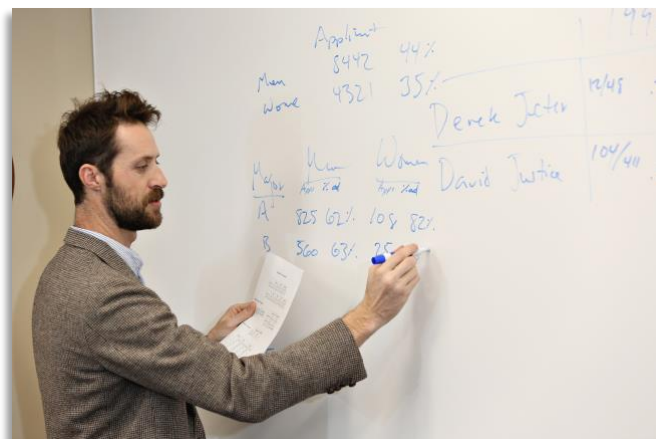 Applicant
Men 8442 44%
Wome 4321 35%
199
Derek Jeter 12/48
David Justice 104/411
Major Men Women
App %ad App %ad
A 825 62% 108 82%
B 560 63% 25